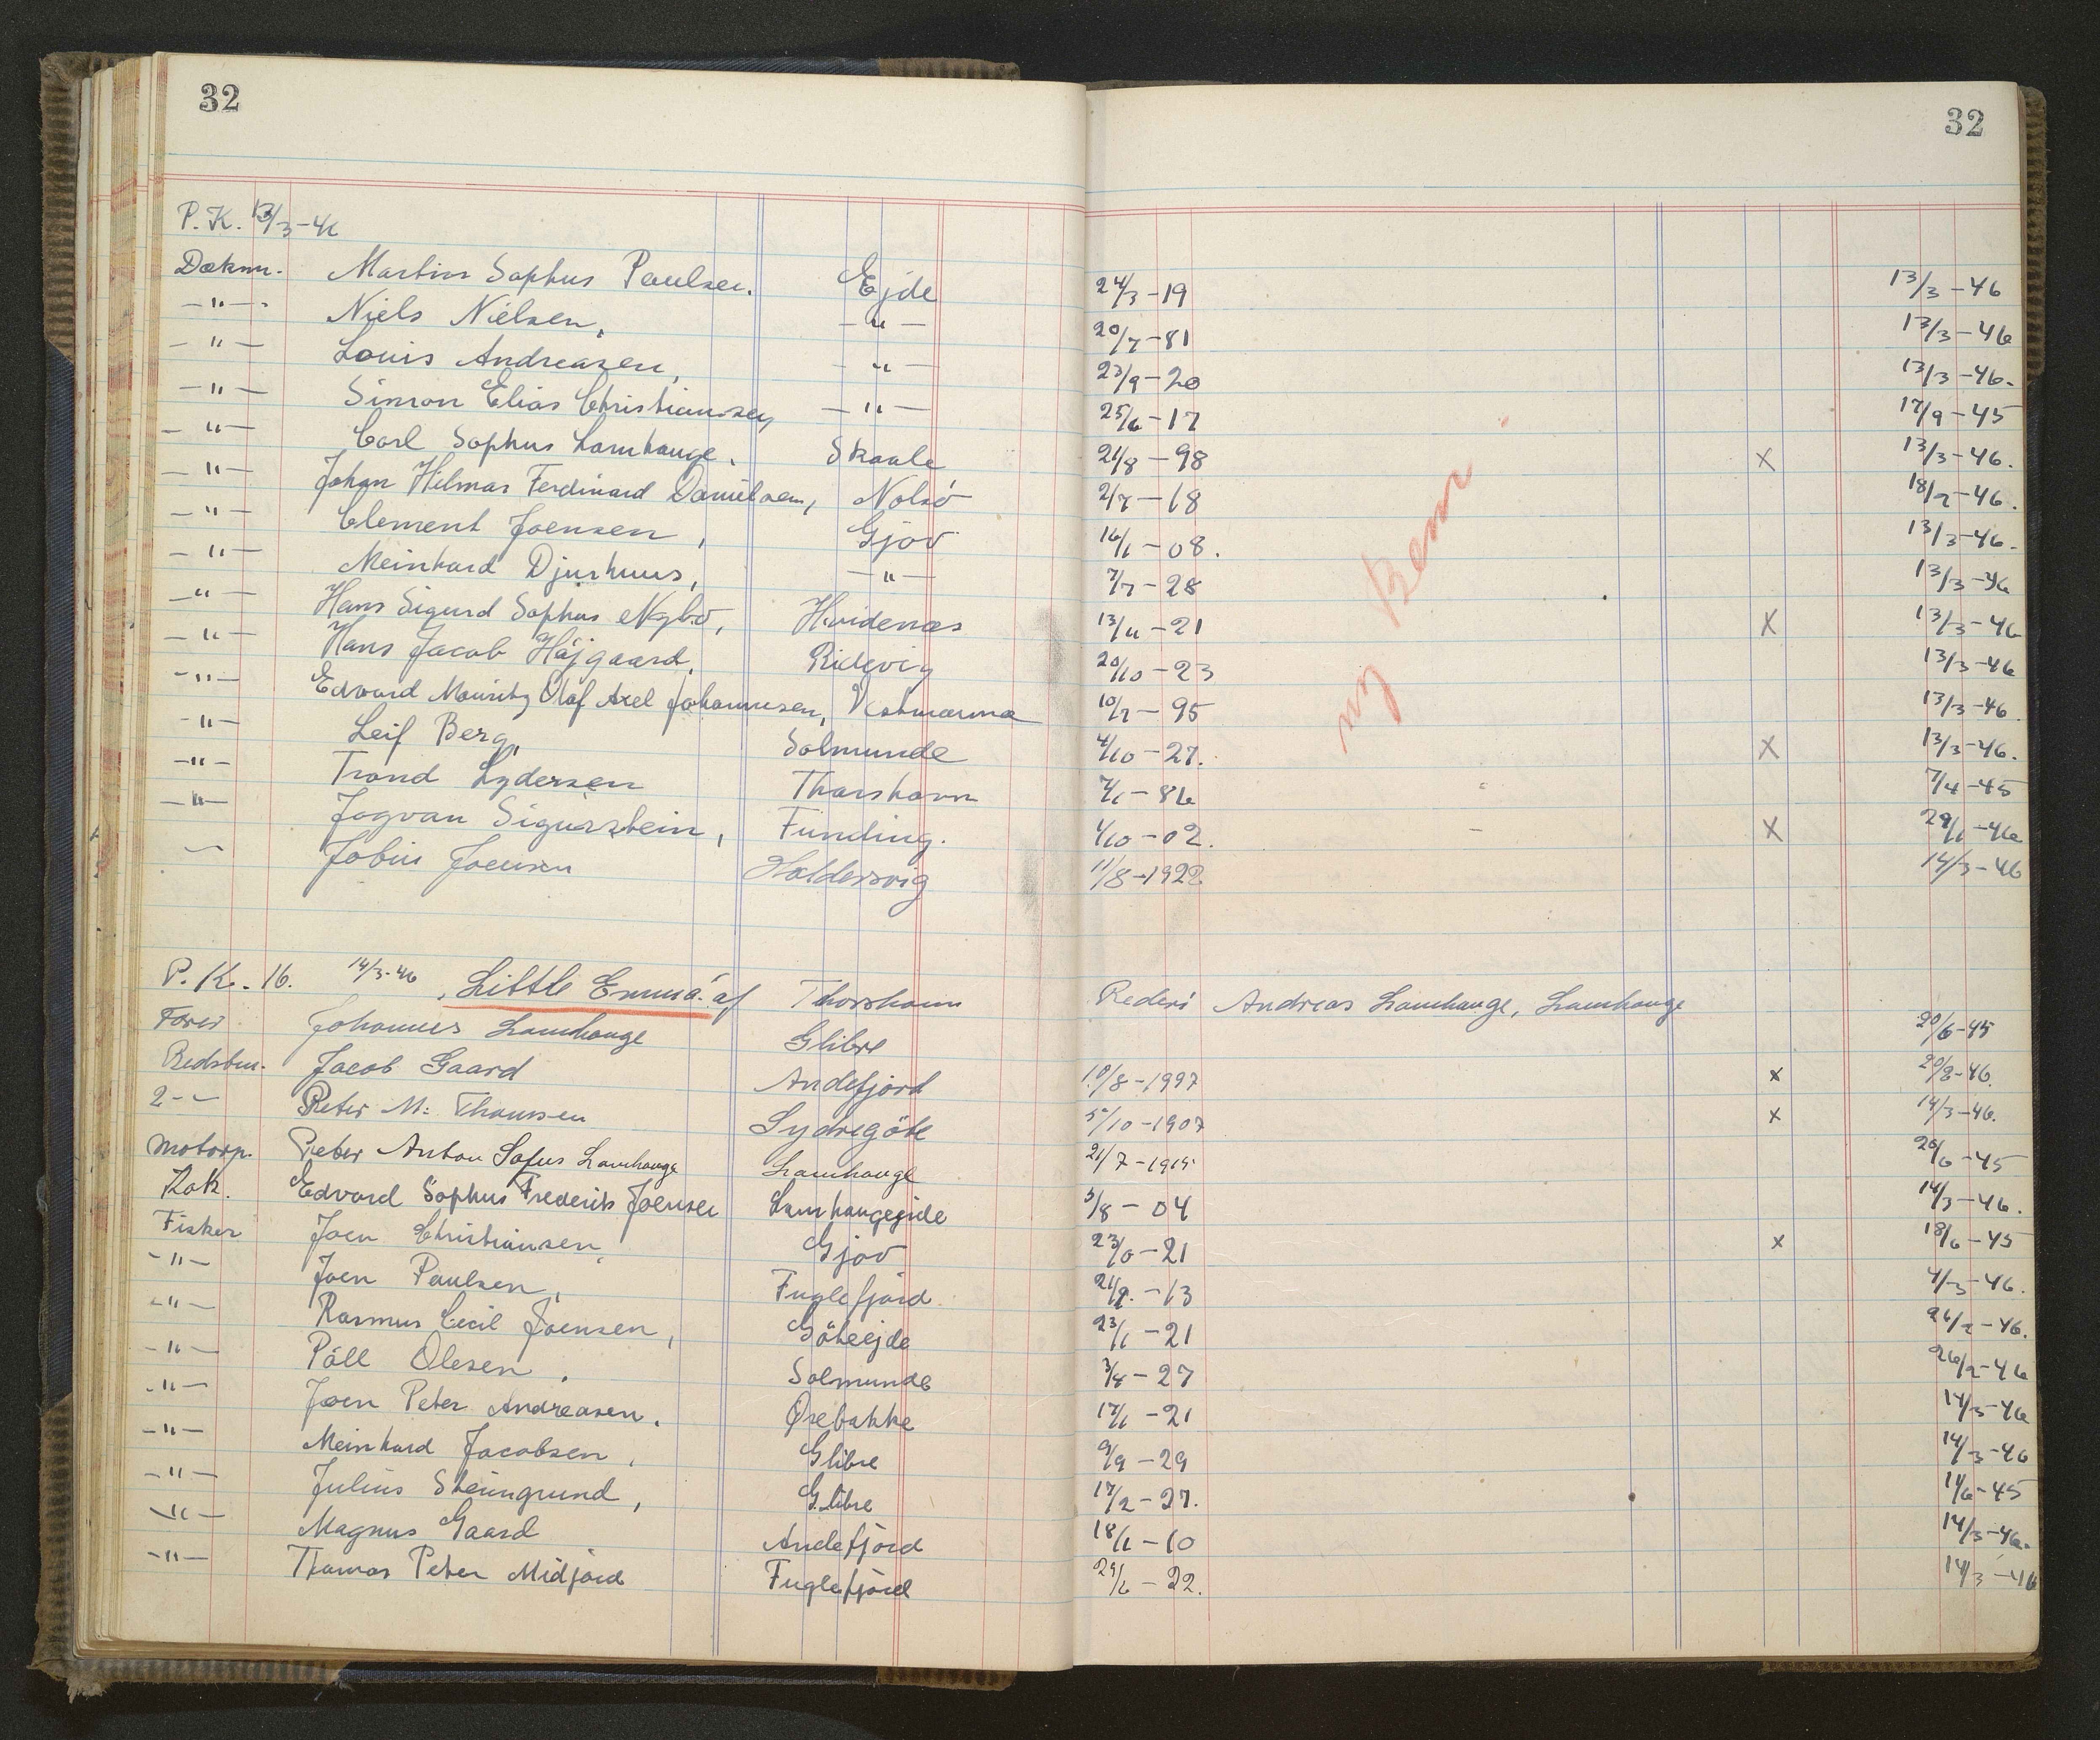 32 32
P. K. 13/3-46
Dæksm. Martin Sophus Poulsen. Ejde 24/3-19 13/3-46
-"- Niels Nielsen, -"- 20/7-81 13/3-46
-"- Louis Andreasen, -"- 23/9-20 13/3-46.
-"- Simon Elias Christiansen, -"- 25/6-17 17/9-45
-"- Carl Sophus Lamhauge. Skaale 21/8-98 X 13/3-46.
-"- Johan Hilmar Ferdinard Danielsen, Nolsö 2/7-18 18/2-46.
-"- Clement Joensen, Gjov 16/1-08. 13/3-46.
-"- Meinhard Djurhuus, -"- 7/7-28 13/3-46
-"- Hans Sigurd Sophus Nybo, Hvidenæs 13/11-21 X 13/3-46
-"- Hans Jacob Højgaard, Ridevig 20/10-23 13/3-46
-"- Edvard Mouritz Olaf Axel Johannesen, 10/7-95 13/3-46.
-"- Leif Berg, Solmunde 4/10-27. X 13/3-46.
-"- Trond Lydersen Thorshavn 7/1-86 7/4-45
-"- Jogvan Sigurstein, Funding. 1/10-02. X 29/1-46
Jobin Joensen Haldersvig 11/8-1922 14/3-46
ny
P. K. 16. 14/3-46 "Little Emma" af Thorshavn Rederi Andreas Lamhauge, Lamhauge
Fører Johannes Lamhauge Glibre 20/6-45
Bedstm. Jacob Gaard Andefjord 10/8-1997 x 20/2-46.
2-- Peter M: Thomsen Sydregöte 5/10-1907 x 14/3-46.
Motorp. Peter Anton Sofus Lamhauge Lamhauge 21/7-1915 20/6-45
Kok. Edvard Sophus Frederik Joensen Lamhaugejde 3/8-04 14/3-46.
Fisker Joen Christiansen, Gjov 23/10-21 x 18/6-45
-"- Joen Poulsen, Fuglefjord 21/9-13 4/3-46.
-"- Rasmus Cecil Joensen, Göteejde 23/1-21 26/2-46.
-"- Páll Olesen, Solmunde 3/8-27 26/2-46
-"- Joen Peter Andreasen, Ørebakke 17/1-21 14/3-46
-"- Meinhard Jacobsen, Glibre 9/9-29 14/3-46
-"- Julius Steingrund, Glibre 17/2-27. 11/6-45
-"- Magnus Gaard Andefjord 18/1-10 14/3-46.
-"- Thomas Peter Midjord Fuglefjord 29/6-22. 14/3-46